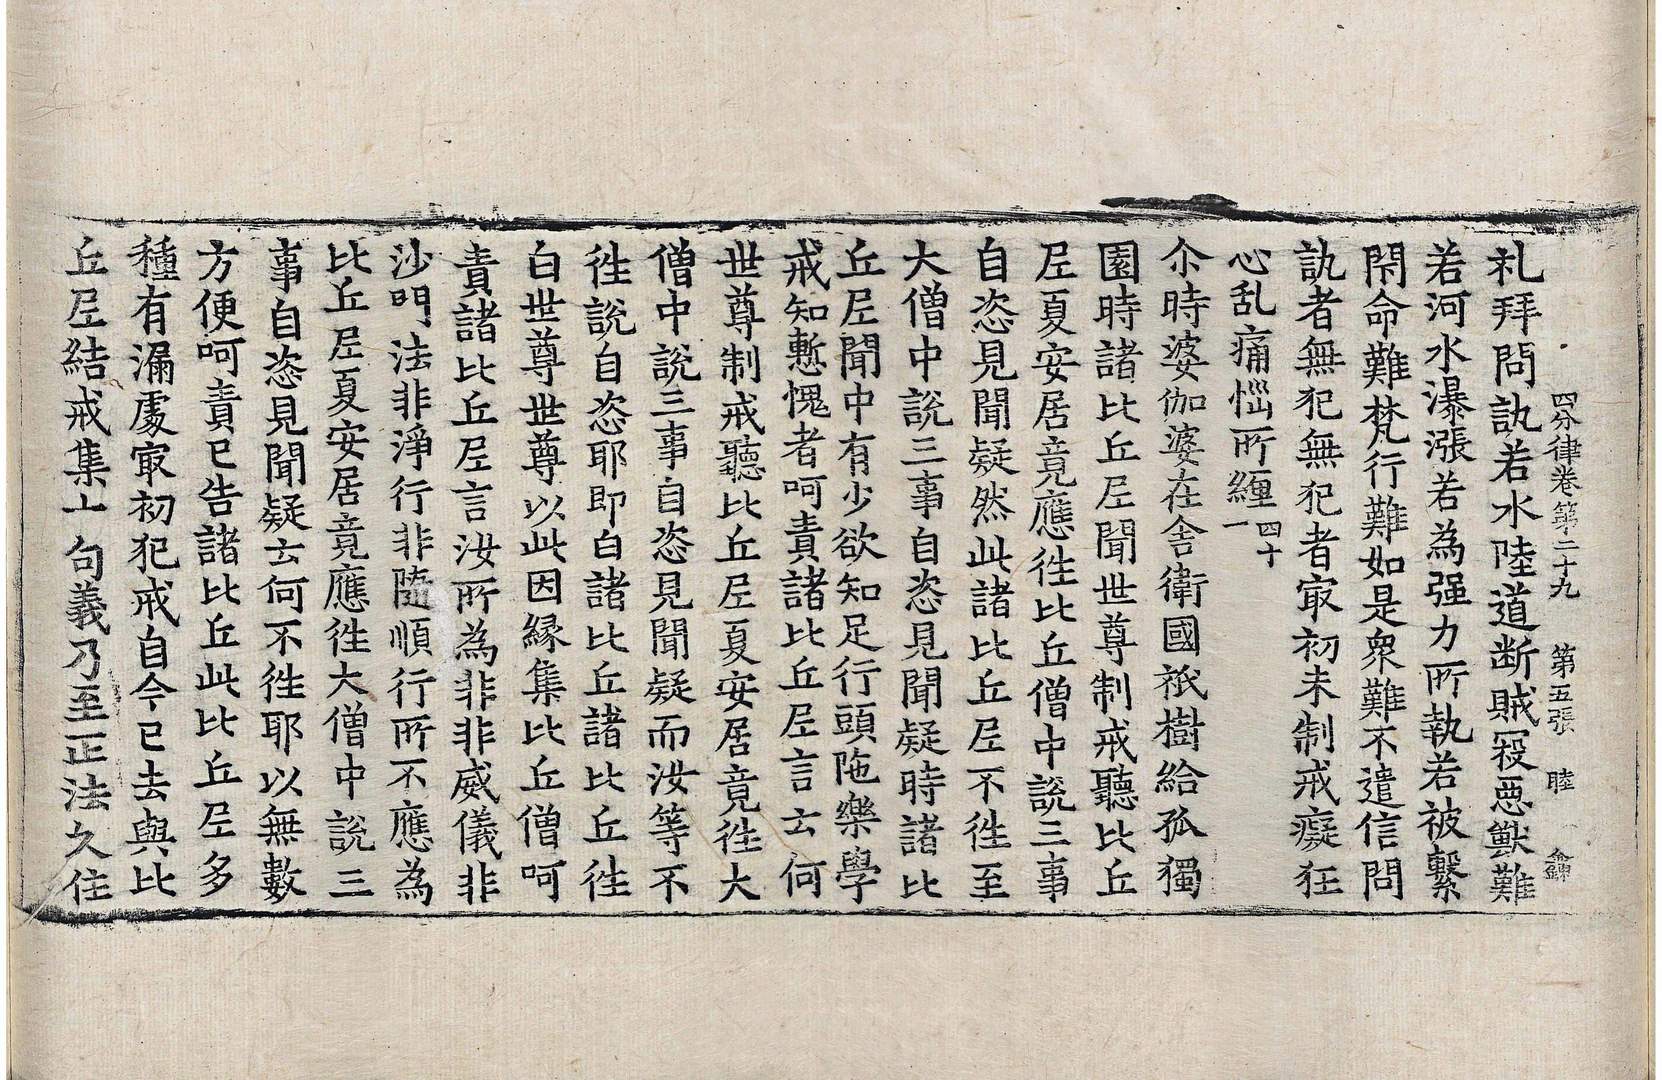 四分律卷第二十九 第五張 睦
礼拜問訊若水陸道断賊冦惡獸難
若河水瀑漲若為强力所執若被繫
閇命難梵行難如是衆難不遣信問
訊者無犯無犯者㝡初未制戒癡狂
心乱痛惱所纏四十一
尒時婆伽婆在舍衛國祇樹給孤獨
園時諸比丘尼聞世尊制戒聽比丘
尼夏安居竟應徃比丘僧中說三事
自恣見聞疑然此諸比丘尼不徃至
大僧中說三事自恣見聞疑時諸比
丘尼聞中有少欲知足行頭陁樂學
戒知慙愧者呵責諸比丘尼言云何
世尊制戒聽比丘尼夏安居竟徃大
僧中說三事自恣見聞疑而汝等不
徃說自恣耶即白諸比丘諸比丘徃
白世尊世尊以此因縁集比丘僧呵
責諸比丘尼言汝所為非非威儀非
沙門法非淨行非隨順行所不應為
比丘尼夏安居竟應徃大僧中說三
事自恣見聞疑云何不徃耶以無數
方便呵責已告諸比丘此比丘尼多
種有漏處㝡初犯戒自今已去與比
丘尼結戒集十句義乃至正法久住